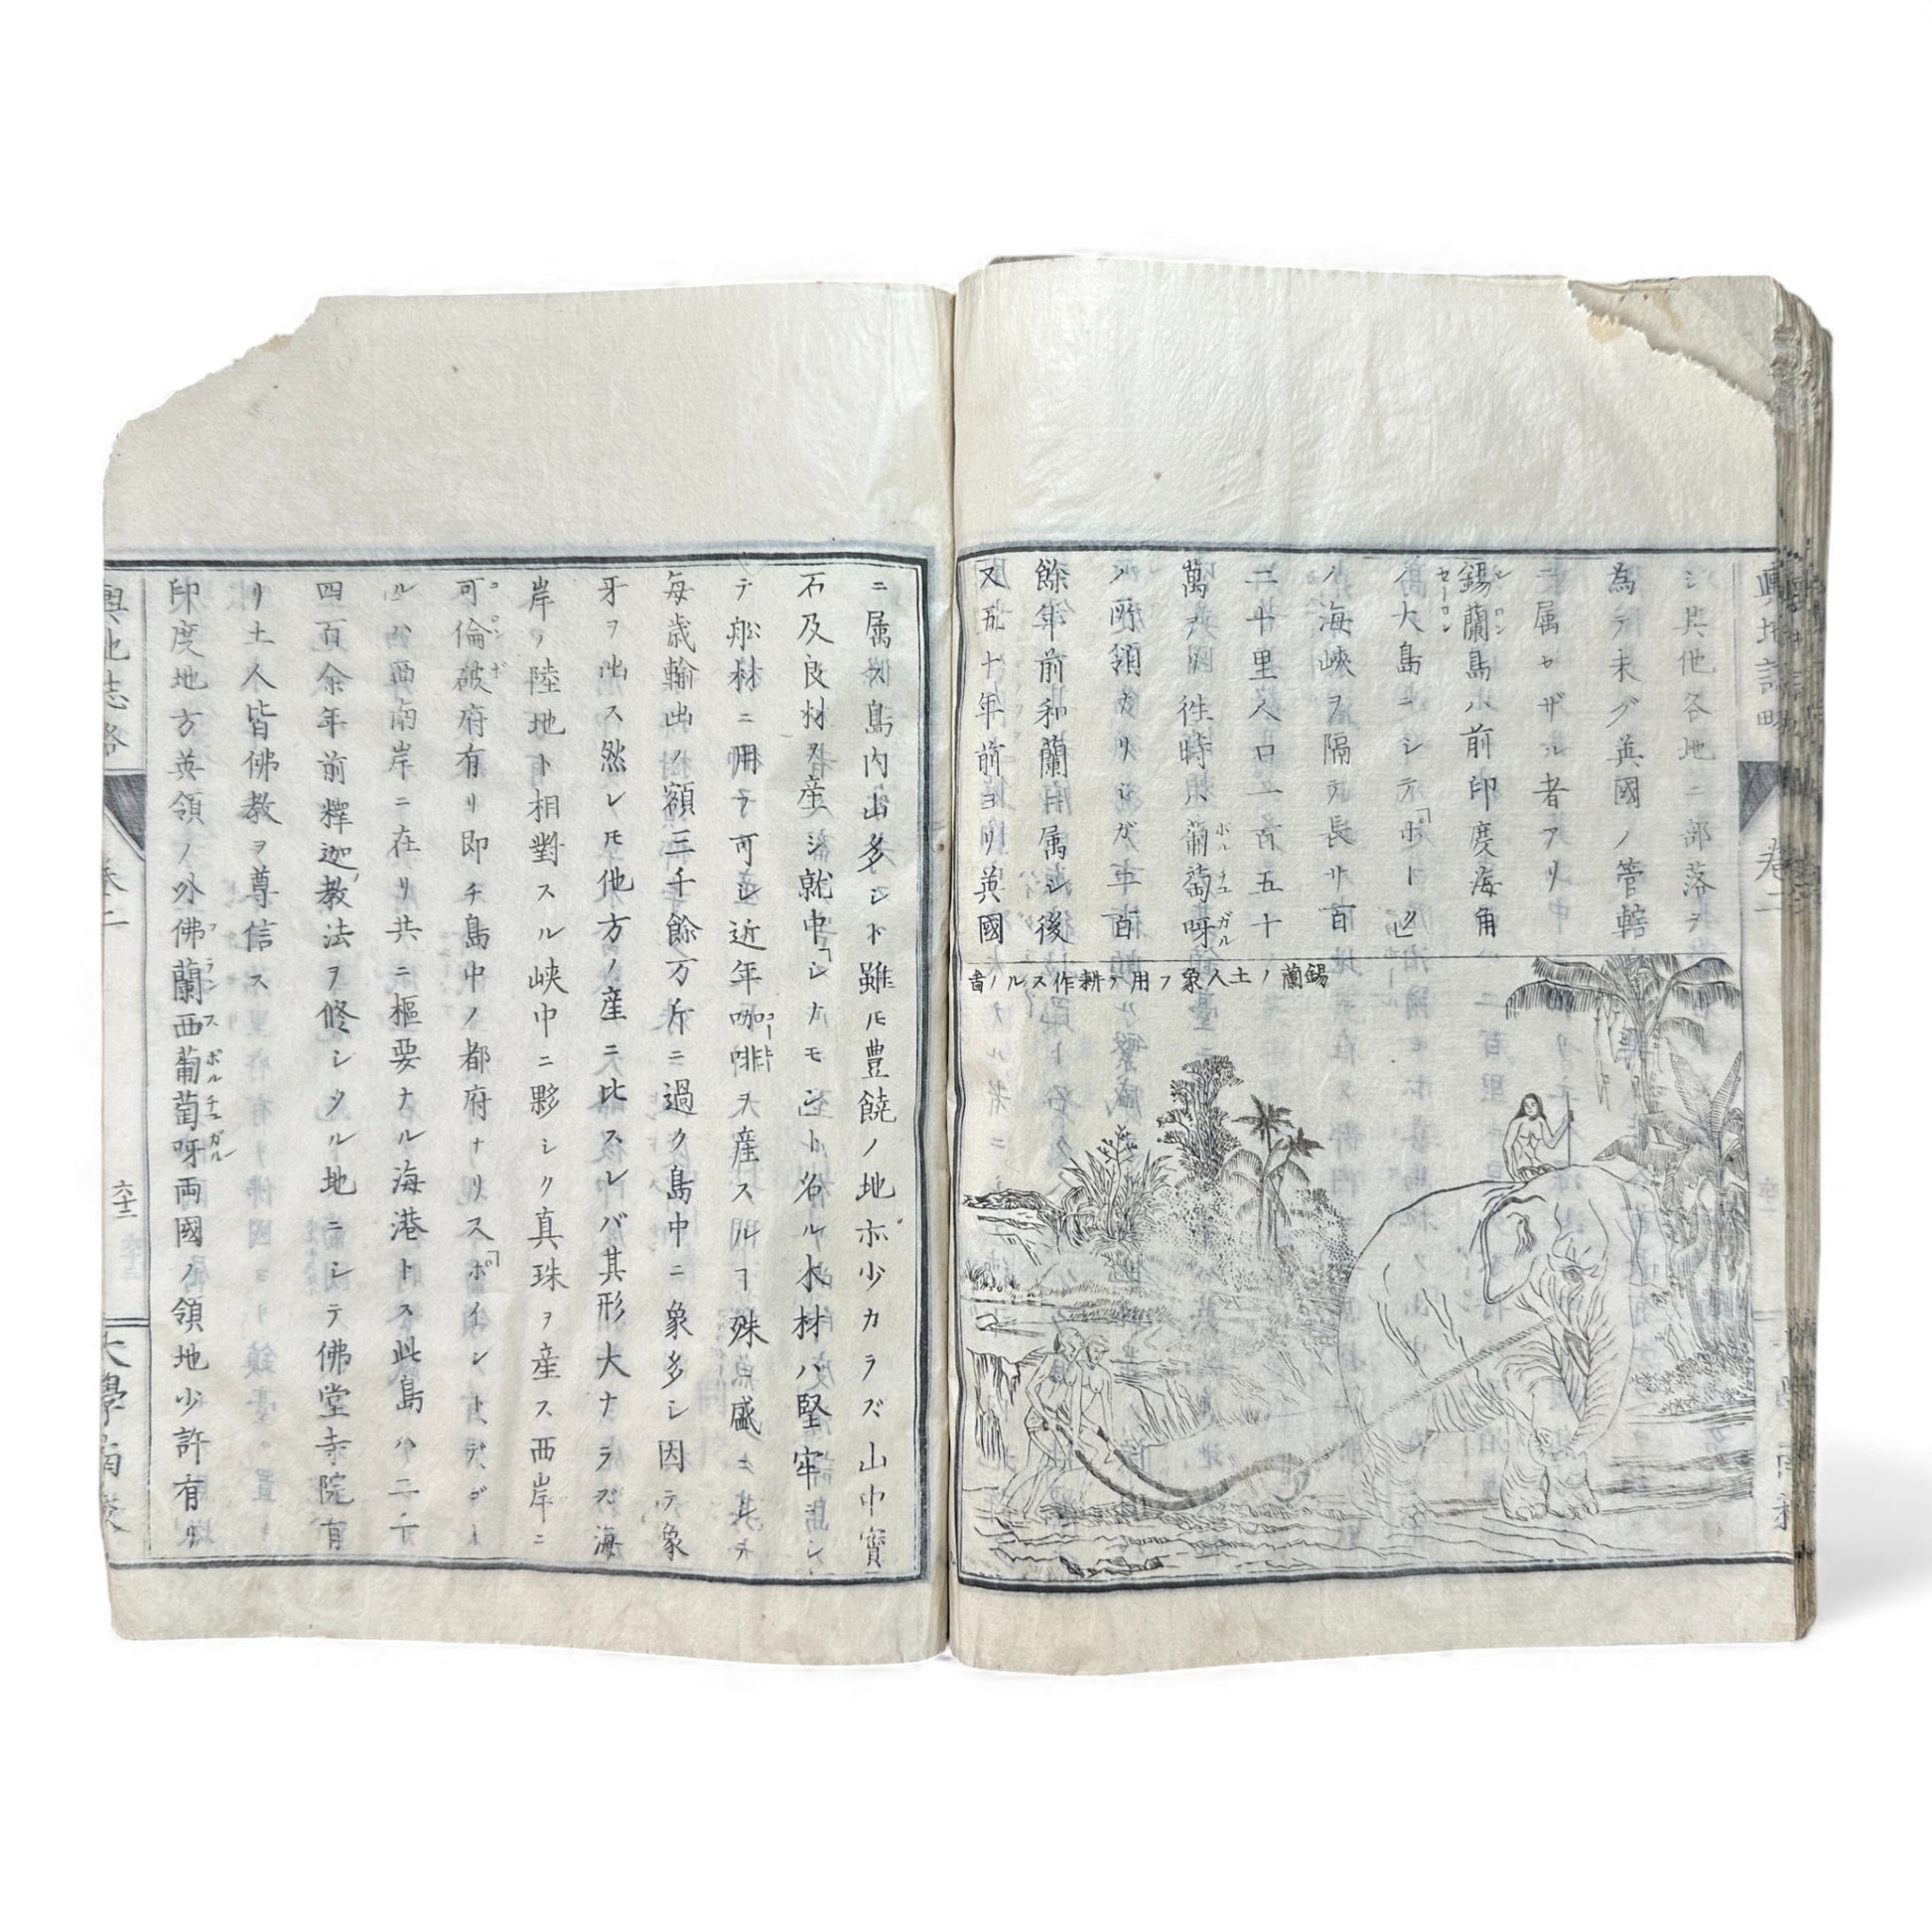 シ其他各地ニ部落ヲ
為テ未ダ英國ノ管轄
ニ属セザル者アリ
錫蘭島ハ前印度海角
シロン
セーロン
ノ大島ニシテ「ポーク」
ノ海峡ヲ隔テ長サ百
二十里人口一百五十
萬アリ徃時ハ葡萄呀
ポルチュガル
ノ所領タリシガ二百
餘年前和蘭府属シ後
又五十年前ヨリ英國
錫蘭ノ土人象ヲ用テ耕作スルノ圖
ニ属ス島内山多シト雖𪜈豊饒ノ地亦少カラズ山中寳
石及良材ヲ産シ就中「シナモン」ト名ル木材ハ堅牢ニシ
テ舩材ニ用ヲ可シ近年咖啡ヲ産スルヿ殊ニ盛ニシテ
コーヒー
毎歳輸出ノ額三千餘万斤ニ過ク島中ニ象多シ因テ象
牙ヲ出ス然レ𪜈他方ノ産ニ比スレバ其形大ナラズ海
岸ノ陸地ト相對スル峡中ニ夥シク真珠ヲ産ス西岸ニ
可倫破府有リ即チ島中ノ都府ナリ
コロンボ
西南岸ニ在リ共ニ樞要ナル海港トス此島ハ二千
四百余年前釋迦教法ヲ修シタル地ニシテ佛堂寺院有
リ土人皆佛教ヲ尊信ス
印度地方英領ノ外佛蘭西葡萄呀両國ノ領地少許有リ
フランス ポルチュガル
輿地誌略
卷二
六十二
大學南校